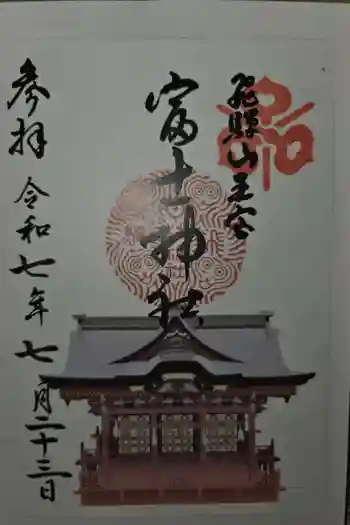 飛騨山王宮
富士神社
参拝 令和七年七月二十三日